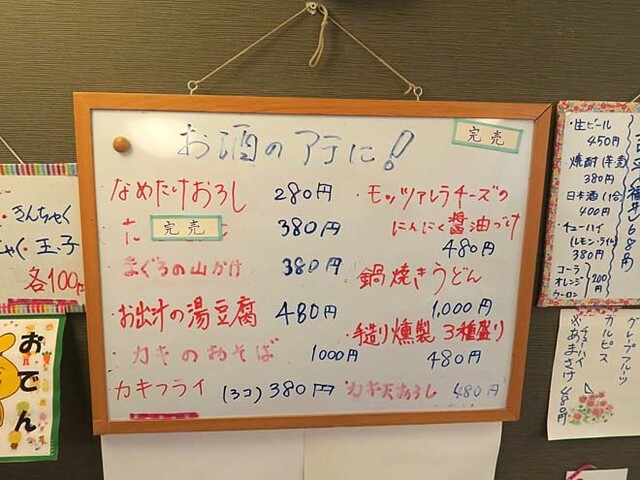 お酒の アテに!
完売
なめたけおろし 280円
た 完売 380円
まぐろの山かけ 380円
お出汁の湯豆腐 480円
カキのおそば 1000円
カキフライ (3コ) 380円
・モッツァレラチーズの
にんにく醤油づけ
480円
鍋焼きうどん
1,000円
・手造り燻製 3種盛り
480円
カキ天おろし 480円
・きんちゃく
・玉子
各100円
おでん
・生ビール
450円
・焼酎(芋・麦)
380円
日本酒(1合)
400円
・チューハイ
(レモン・ライム)
380円
コーラ
オレンジ
ウーロン
200円
680円
グレープフルーツ
カルピス
あまさけ 480円